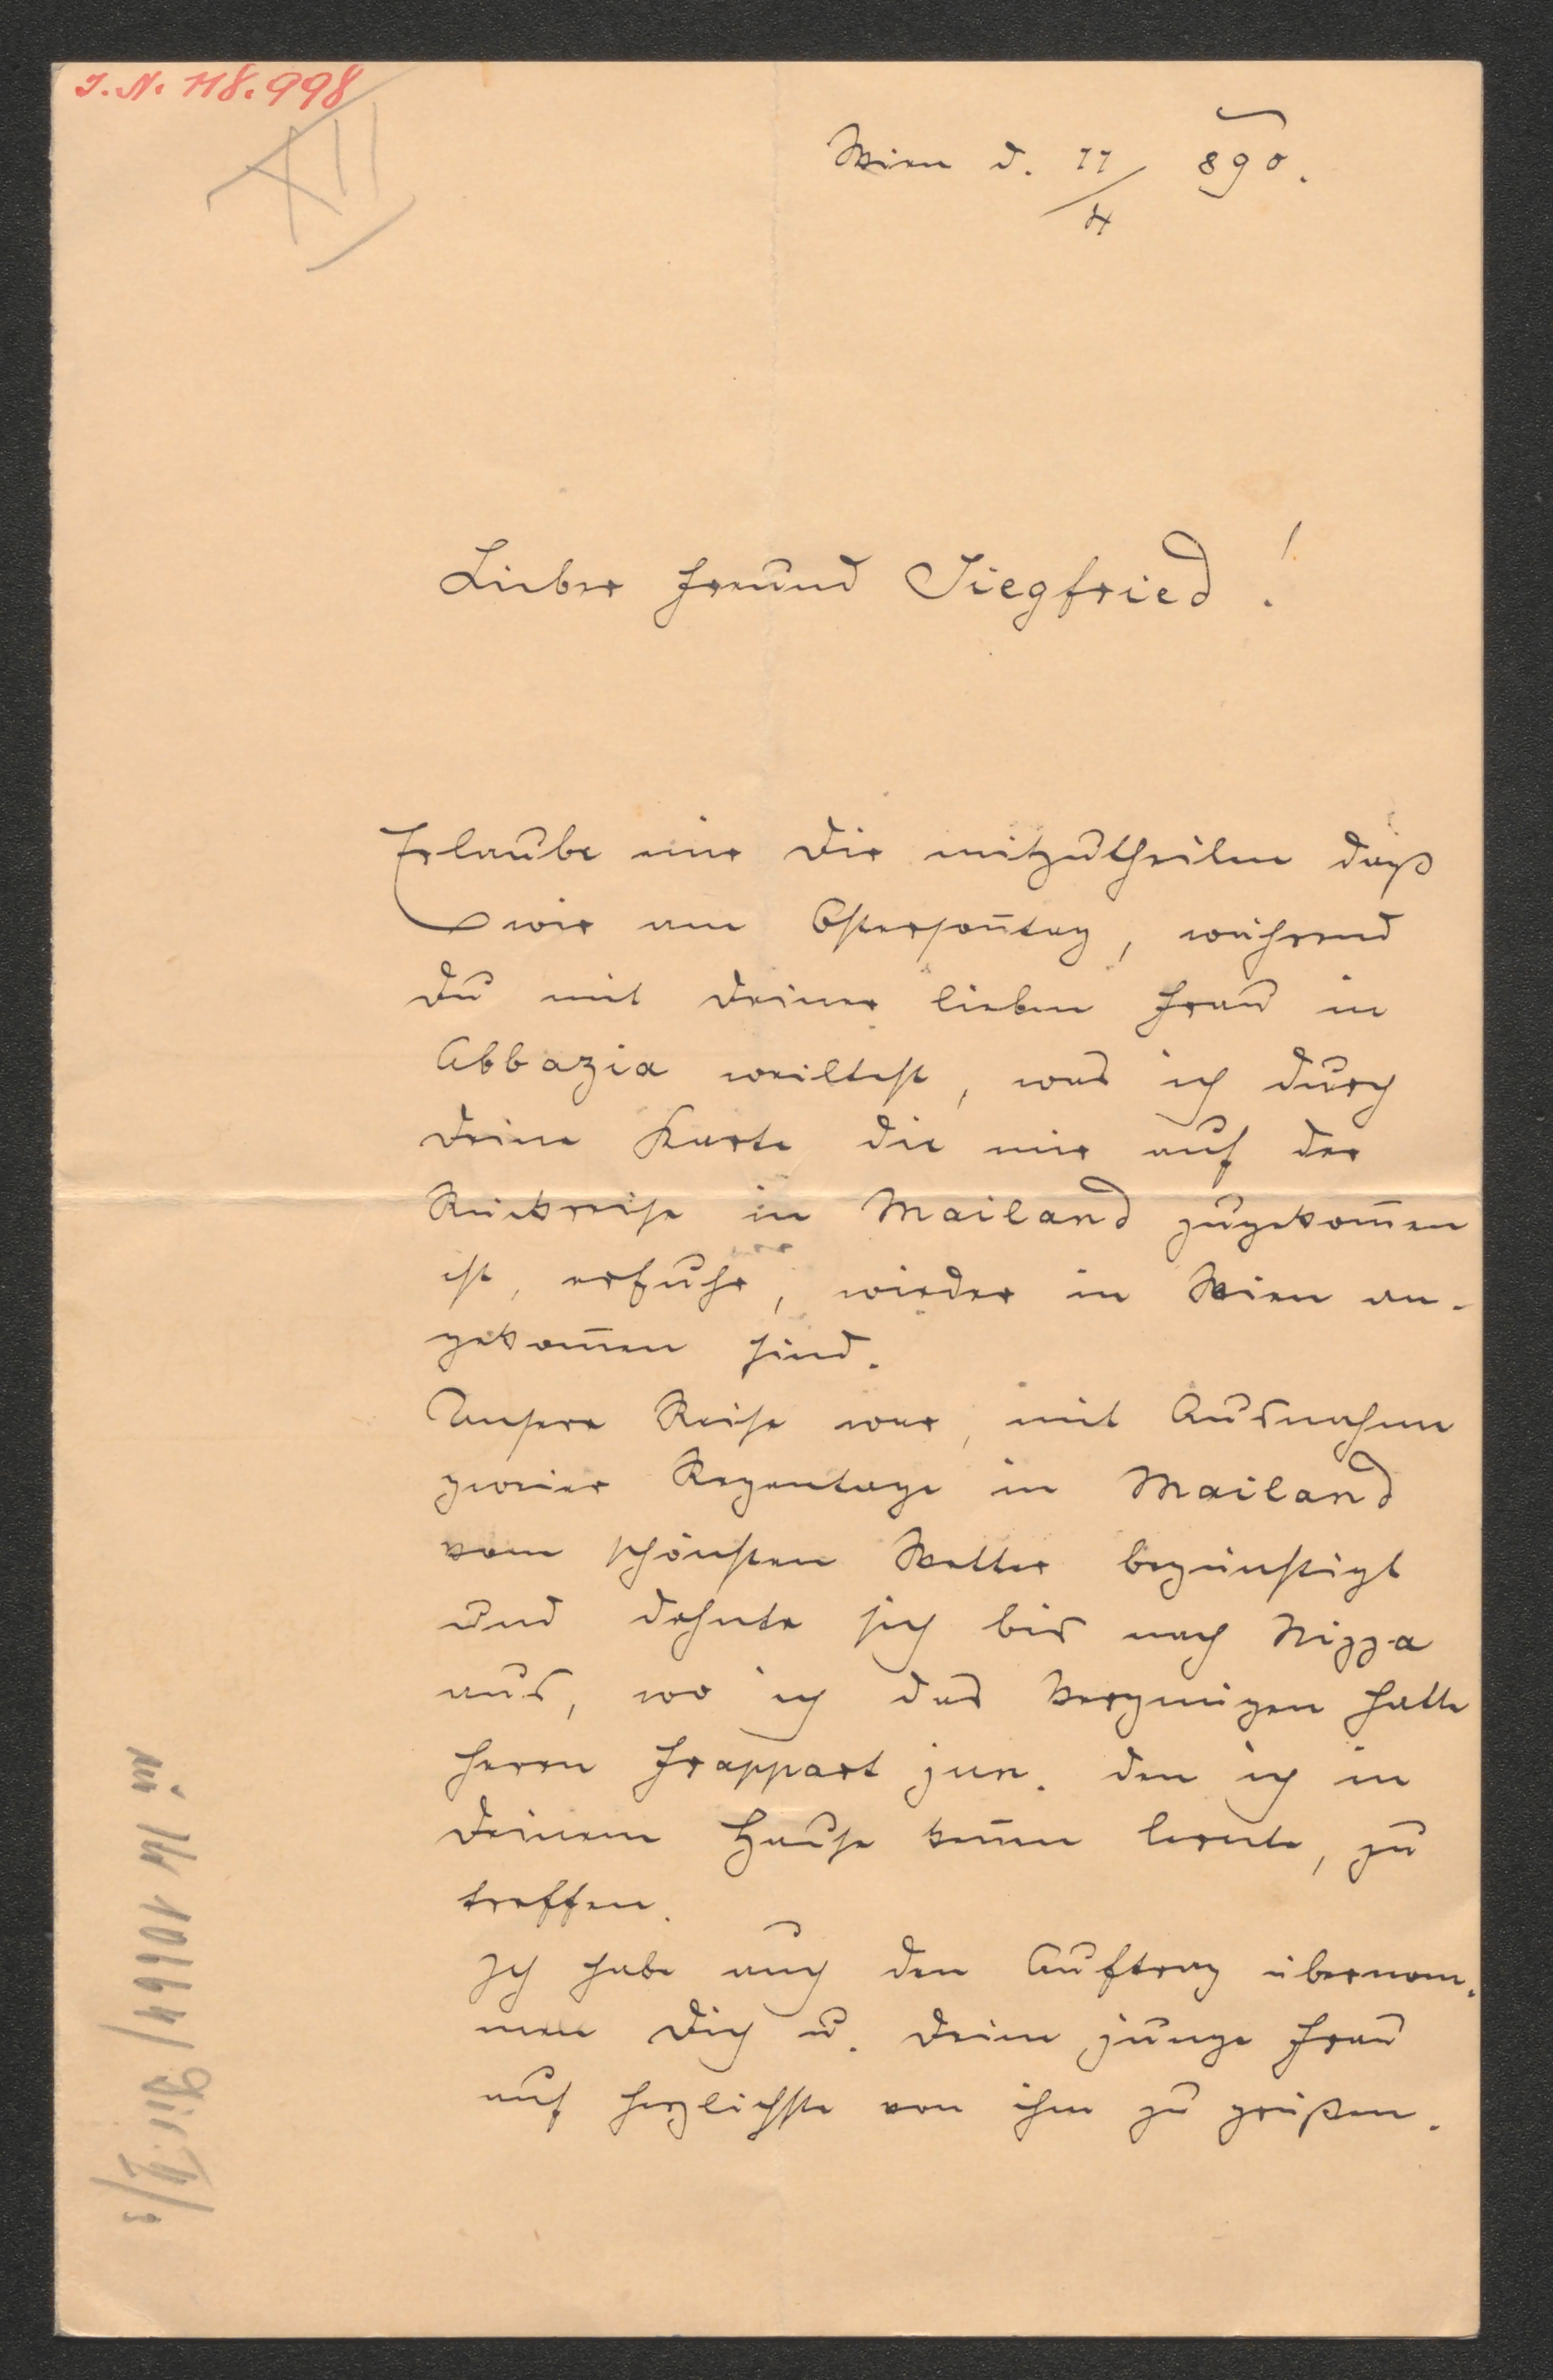 J. N. 118.998
XII
Wien d. 11/4 890.
Lieber Freund Siegfried!
Erlaube mir Dir mitzutheilen daß
wir am Ostersoñtag, während
Du mit Deiner lieben Frau in
Abbazia weiltest, was ich durch
Deine Karte die mir auf der
Rückreise in Mailand zugekom̄en
ist, erfuhr, wieder in Wien an-
gekom̄en sind.
Unsere Reise war, mit Ausnahme
zweier Regentage in Mailand
vom schönsten Wetter begünstigt
und dehnte sich bis nach Nizza
aus, wo ich das Vergnügen hatte
Herrn Frappart jun. den ich in
Deinem Hause keñen lernte, zu
treffen.
Ich habe auch den Auftrag übernom-
men Dich u. Deine junge Frau
auf herzlichste von ihm zu grüßen.